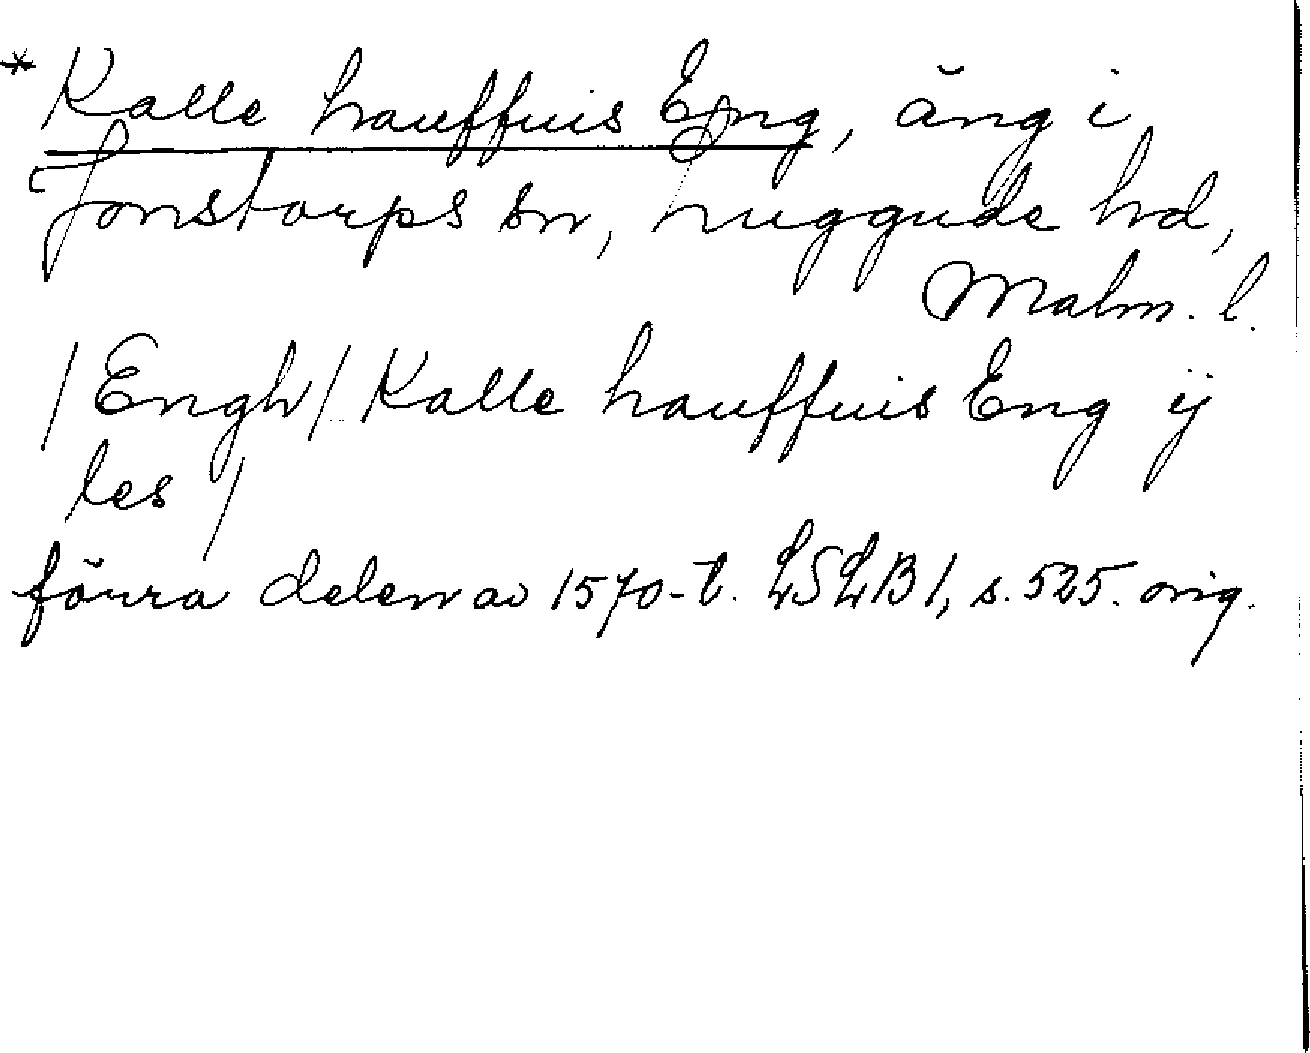 * Kalle hauffuis Eng, äng i
Jonstorps sn, Luggude hd,
Malm. l.
/Engh/ Kalle hauffuis Eng ij
les /
förra delen av 1570-t. LSLB1, s. 525. orig.